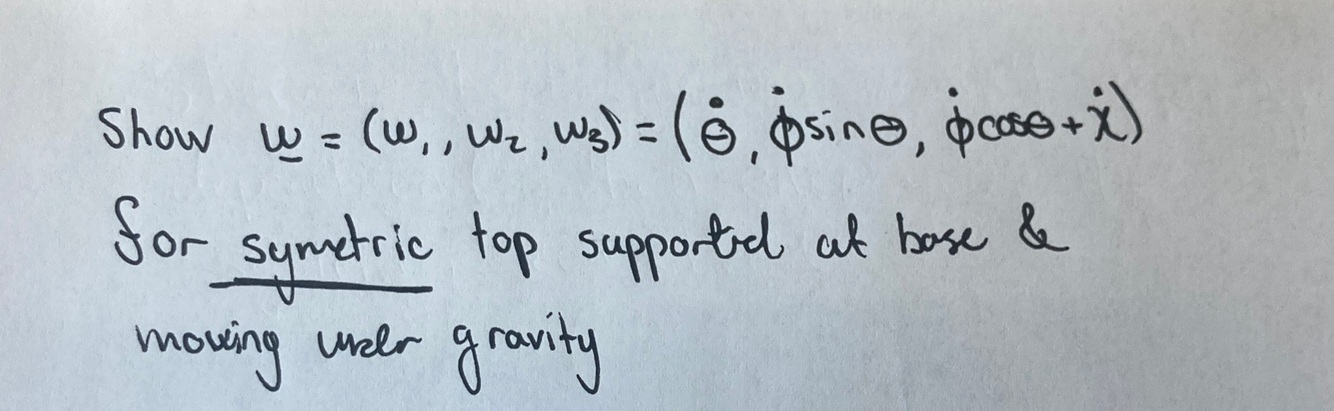 Show w = (w₁, w₂, w₃) = (θ̇, φ̇sinθ, φ̇cosθ + ẋ)
for symetric top supported at base &
moving under gravity